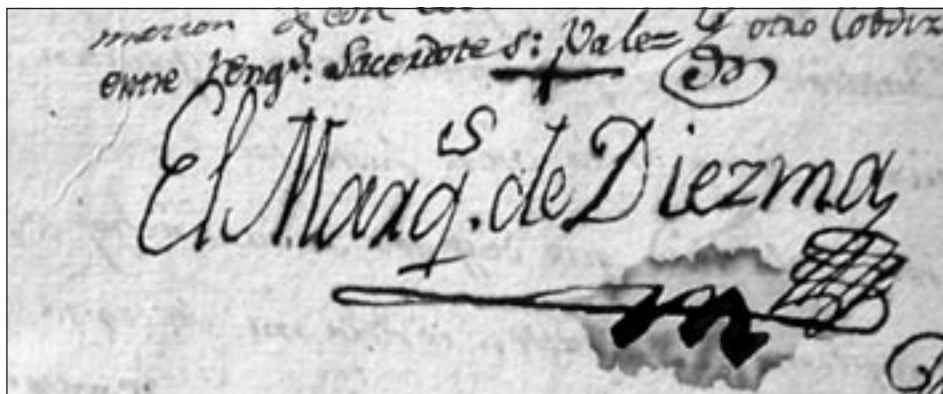 entre Reng.s Sacerdote s: Vale= y otro
El Marq.s de Diezma